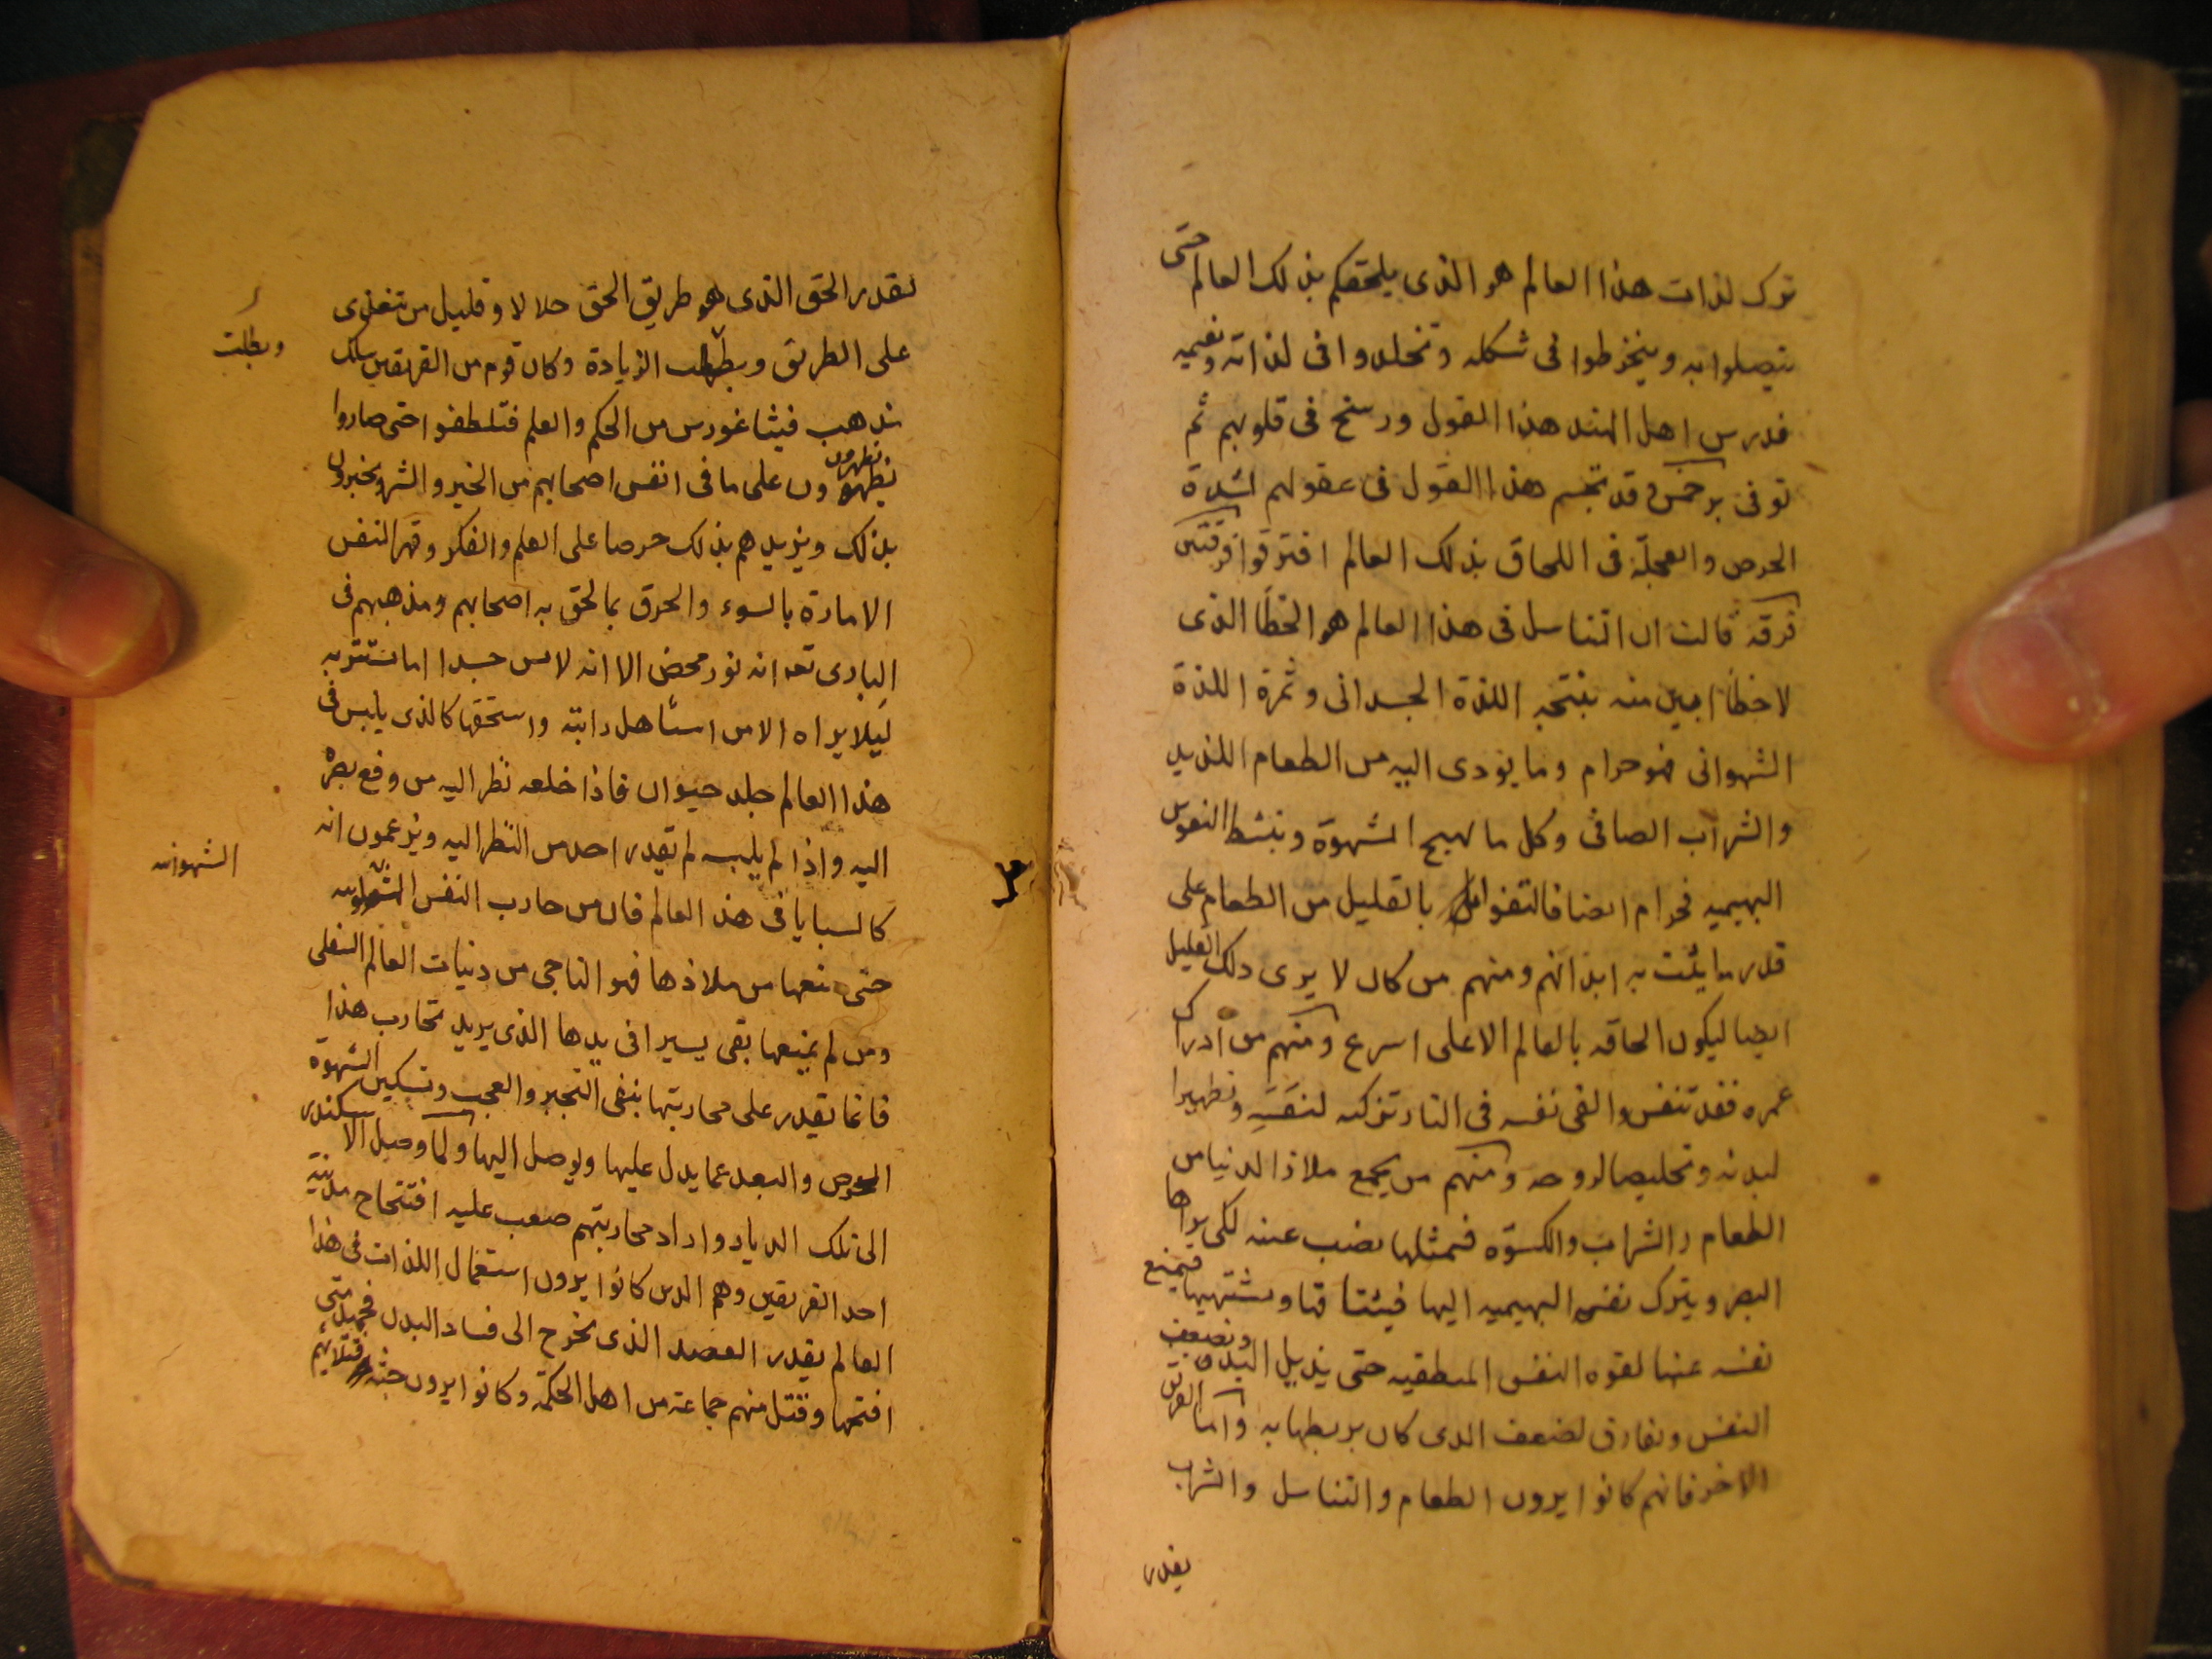 ترك لذات هذا العالم هو الذى يلحقكم بذلك العالم حتى
يتصلوا به وينخرطوا فى شكله وتخلدوا فى لذاته ونعيمه
فدرس اهل الهند هذا القول ورسخ فى قلوبهم ثم
توفى برخمس وقد تجسم هذا القول فى عقولهم لشدة
الحرص والعجلة فى اللحاق بذلك العالم افترقوا فرقتين
فرقة قالت ان التناسل فى هذا العالم هو الخطأ الذى
لا خطأ ابين منه ينتجه اللذة الجسدانى وثمرة اللذة
الشهوانى فهو حرام وما يؤدى اليه من الطعام اللذيد
والشراب الصافى وكل ما يهيج الشهوة وينشط النفوس
البهيميه فحرام ايضا فاكتفوا بالقليل من الطعام على
قدر ما يثبت به ابدانهم ومنهم من كان لا يرى ذلك القليل
ايضا ليكون الحاقه بالعالم الاعلى اسرع ومنهم من ادرك
عمره فقد تنفس والقى نفسه فى النار تزكيه لنفسه وتطهيرا
لبدنه وتخليصا لروحه ومنهم من يجمع ملاذ الدنيا من
الطعام والشراب والكسوة فيمثلها نصب عينه لكى يراها
البصر ويترك نفسه البهيميه اليها فيشتاقها ويشتهيها فيمنع
نفسه عنها لقوه النفس المنطقيه حتى يذبل البدن وتضعف
النفس وتفارق لضعف الذى كان يربطها به واما الفريق
الاخر فانهم كانوا يرون الطعام والتناسل والشراب
بقدر
بقدر الحق الذى هو طريق الحق حلالا وقليل من تعدى
على الطريق ويطلب الزيادة وكان قوم من الفريقين سلك
ويطلب
مذهب فيثاغورس من الحكم والعلم فتلطفوا حتى صاروا
يظهرون على ما فى انفس اصحابهم من الخير والشر ويخبرون
بذلك ويزيدهم بذلك حرصا على العلم والفكر وقهر النفس
الامارة بالسوء والحرق بما لحق به اصحابهم ومذهبهم فى
البارى تعه انه نور محض الا انه لابس جسدا اما يستتر به
ليلا يراه الا من استاهل رايته واستحقها كالذى يلبس فى
هذا العالم جلد حيوان فاذا خلعه نظر اليه من وقع بصره
اليه واذا لم يلبسه لم يقدر احد من النظر اليه ويزعمون انه
كالسبايا فى هذا العالم فان من حارب النفس الشهوانيه
الشهوانيه
حتى منعها من ملاذها فهو الناجى من دنيات العالم السفلى
ومن لم يمنعها بقى يسيرا فى يدها الذى يريد تحارب هذا
فانما تقدر على محاربتها بنفى التجبر والعجب وتسكين الشهوة
الحرص والبعد عما يدل عليها ويوصل اليها ولما وصل الاسكندر
الى تلك الديار واراد محاربتهم صعب عليه افتتاح مدينة
احد الفريقين وهم الذين كانوا يرون استعمال اللذات فى هذا
العالم بقدر القصد الذى يخرج الى فساد البدن فجهد حتى
افتتحها وقتل منهم جماعة من اهل الحكمة وكانوا يرون جثه قتلاهم